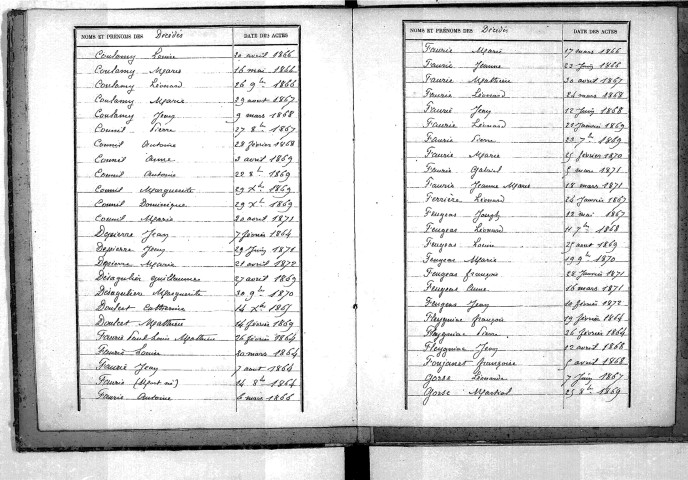 NOMS ET PRÉNOMS DES Décédés DATE DES ACTES
Coulamy Louise 20 avril 1866
Coulamy Marie 16 mai 1866
Coulamy Léonard 26 9bre 1866
Coulamy Marie 29 août 1867
Coulamy Jeny 9 mars 1868
Counil Pierre 27 8bre 1867
Counil Antoine 28 février 1868
Counil Anne 3 avril 1869
Counil Antoine 22 8bre 1869
Counil Marguerite 29 Xbre 1869
Counil Dominique 29 Xbre 1869
Counil Marie 20 avril 1871
Depierre Jean 7 février 1864
Depierre Jeny 29 Juin 1871
Depierre Marie 21 avril 1872
Désagulier Guillaume 27 avril 1869
Désagulier Marguerite 30 9bre 1870
Doulcet Catherine 14 Xbre 1867
Doulcet Mathieu 14 février 1869
Faurie Paul-Louis Mathieu 26 février 1864
Faurie Louise 20 mars 1864
Faurie Jeny 7 août 1864
Faurie (Mort né) 14 8bre 1864
Faurie Antoine 6 mars 1866
NOMS ET PRÉNOMS DES Décédés DATE DES ACTES
Faurie Marie 17 mars 1866
Faurie Jeanne 22 Juin 1866
Faurie Mathieu 30 avril 1867
Faurie Léonard 26 mars 1868
Faurie Jeny 12 Juin 1868
Faurie Léonard 22 Janvier 1869
Faurie Pierre 23 7bre 1869
Faurie Marie 25 février 1870
Faurie Gabriel 5 mars 1871
Faurie Jeanne Marie 18 mars 1871
Ferrière Léonard 26 Janvier 1867
Feugeas Joseph 12 mai 1867
Feugeas Léonard 11 7bre 1868
Feugeas Louise 25 août 1869
Feugeas Marie 19 9bre 1870
Feugeas françois 28 Janvier 1871
Feugeas Anne 16 mars 1871
Feugeas Jeny 10 février 1872
Fleygniac françois 19 février 1864
Fleygniac Pierre 26 février 1864
Fleygniac Jeny 12 avril 1868
Foujanet françoise 5 avril 1868
Gorse Léonarde 7 Juin 1867
Gorse Martial 25 8bre 1869